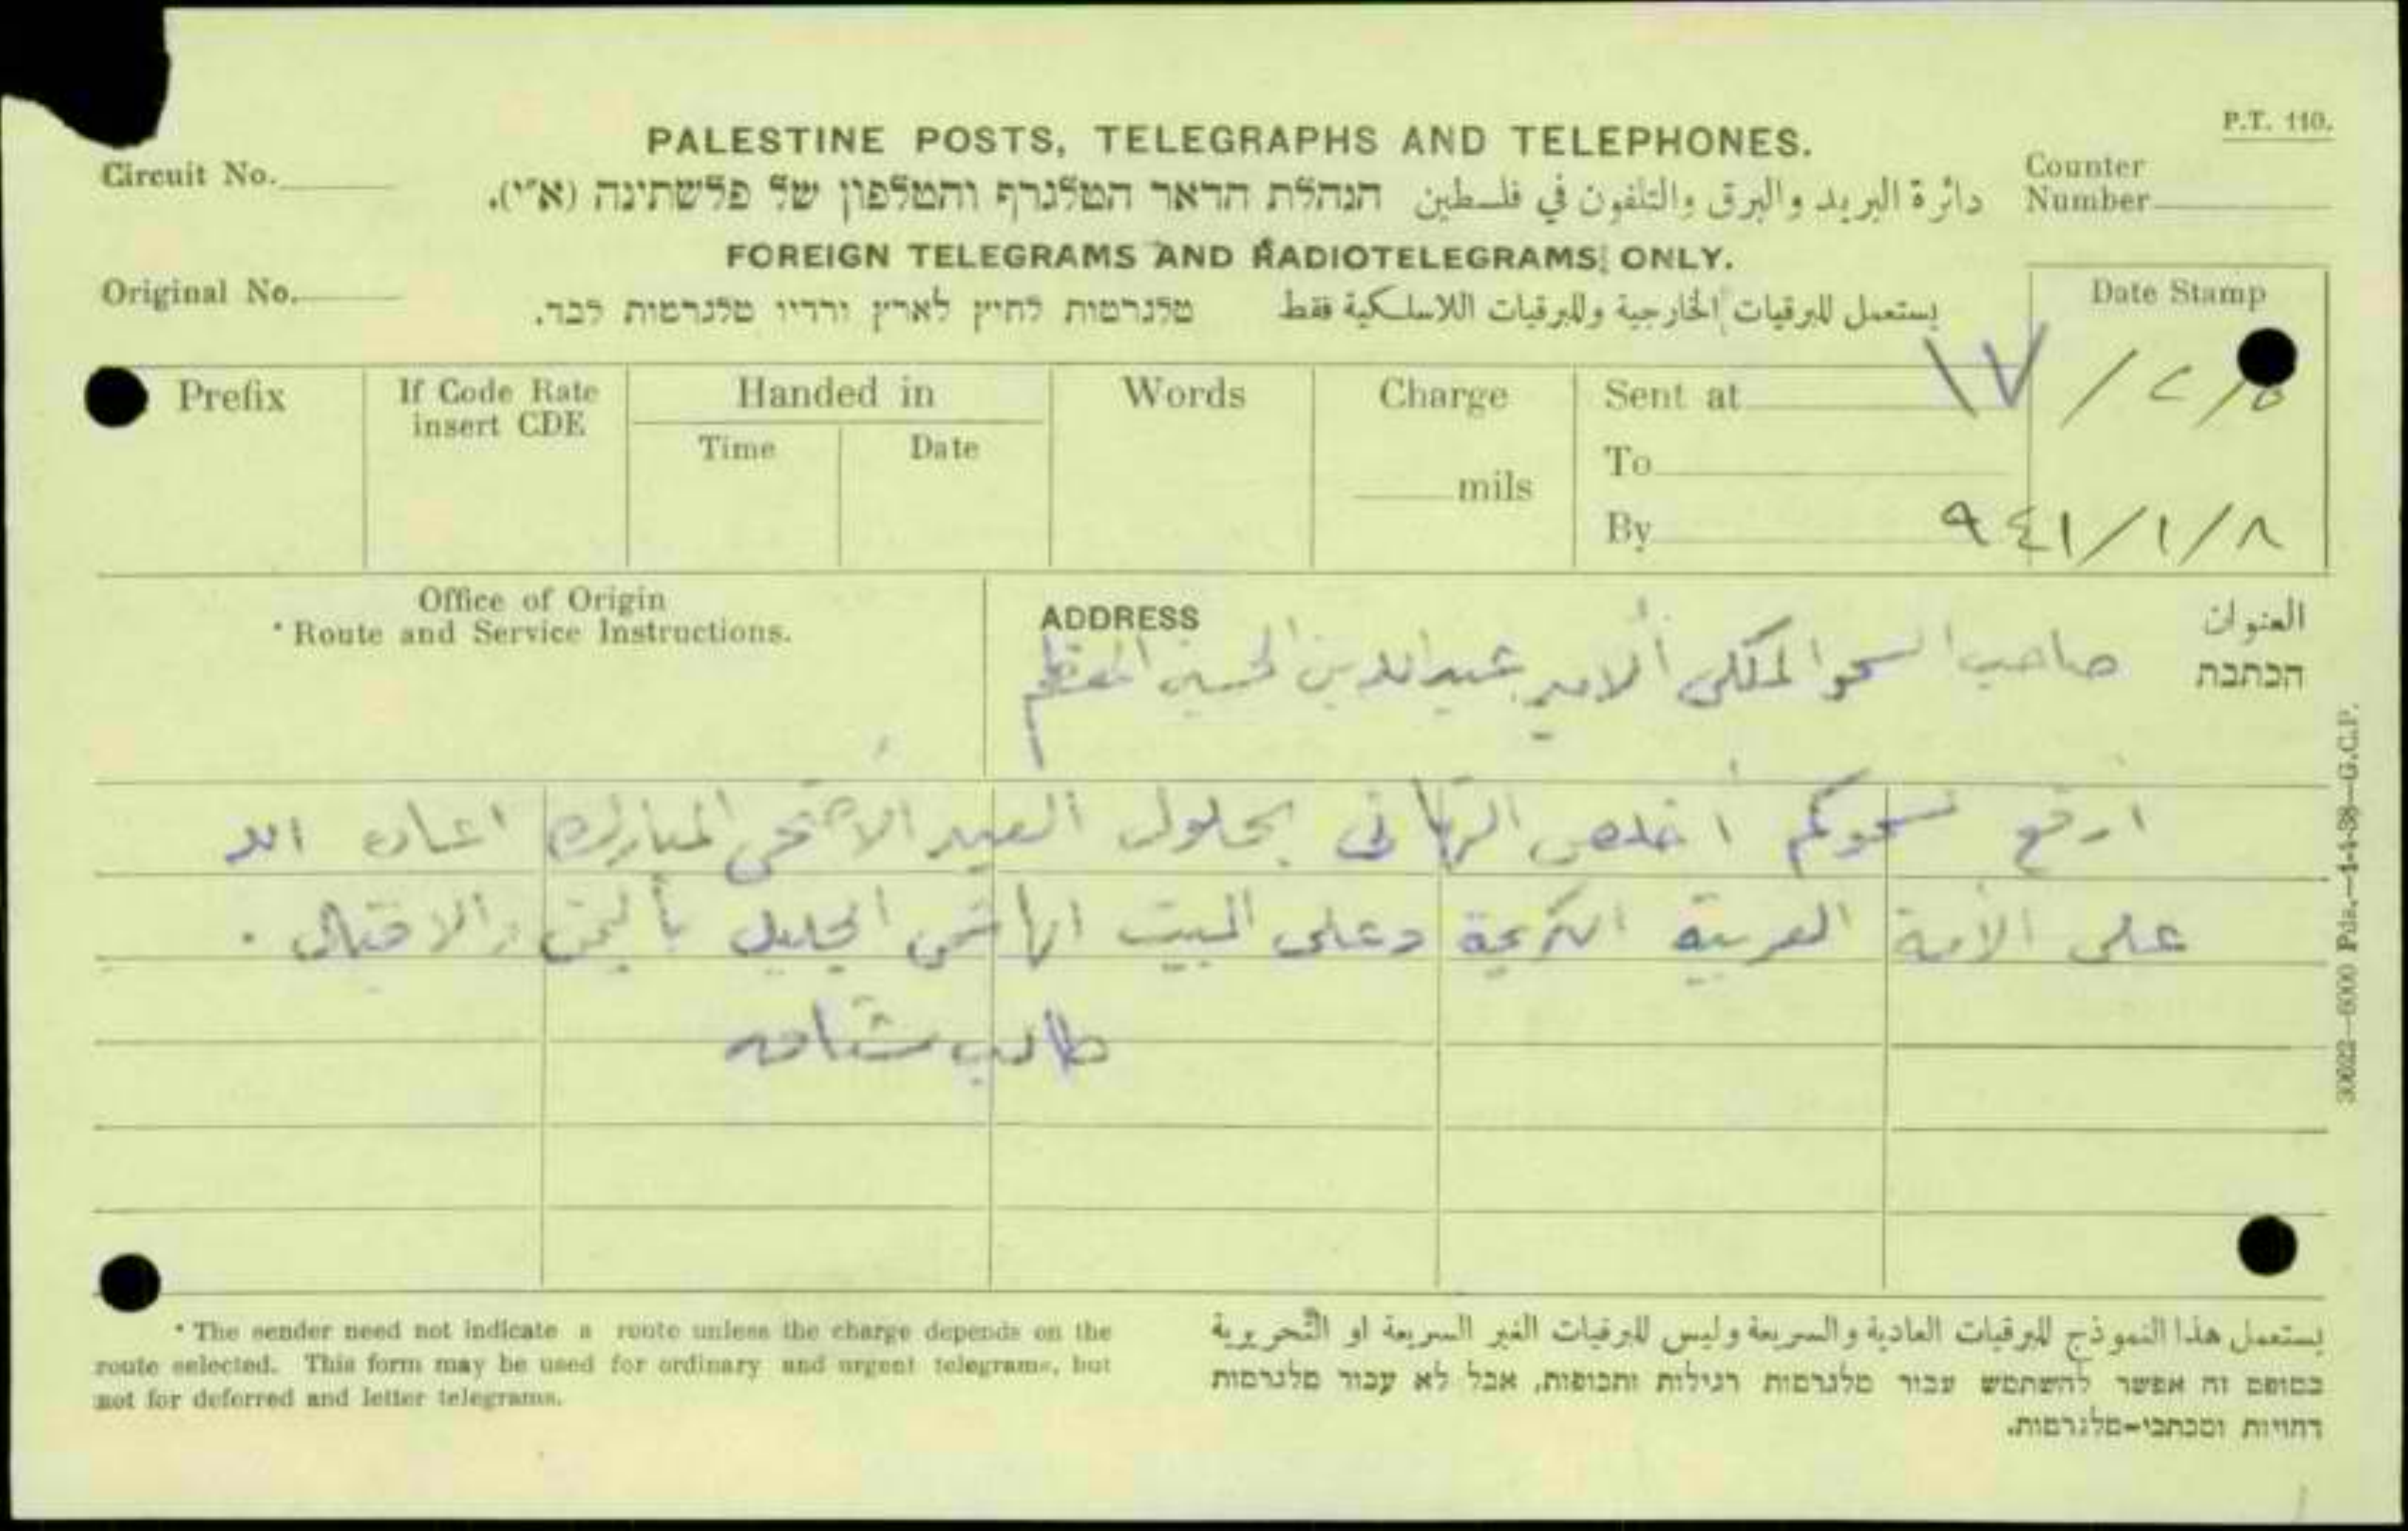 P.T. 110.
PALESTINE POSTS, TELEGRAPHS AND TELEPHONES.
Circuit No.
Counter Number
دائرة البريد والبرق والتلفون في فلسطين הנהלת הדאר הטלגרף והטלפון של פלשתינה (א״י).
FOREIGN TELEGRAMS AND RADIOTELEGRAMS ONLY.
Original No.
Date Stamp
يستعمل للبرقيات الخارجية وللبرقيات اللاسلكية فقط טלגרמות לחוץ לארץ ורדיו טלגרמות לבד.
١٧/٢/٥
Prefix
If Code Rate insert CDE
Handed in
Time
Date
Words
Charge
mils
Sent at
To
By
٩٤١/١/٨
Office of Origin
* Route and Service Instructions.
ADDRESS
العنوان
הכתבת
صاحب السمو الملكي الأمير عبدالله بن الحسين المعظم
ارفع لسموكم أخلص التهاني بحلول العيد الأضحى المبارك اعاده الله
على الأمة العربية الكريمة وعلى البيت الهاشمي الجليل باليمن والاقبال .
طالب
30622—6000 Pds.—4-4-38—G.C.P.
* The sender need not indicate a route unless the charge depends on the
route selected. This form may be used for ordinary and urgent telegrams, but
not for deferred and letter telegrams.
يستعمل هذا النموذج للبرقيات العادية والسريعة وليس للبرقيات الغير السريعة او التحريرية
בטופס זה אפשר להשתמש עבור טלגרמות רגילות ותכופות, אבל לא עבור טלגרמות
דחויות ומכתבי-טלגרמות.